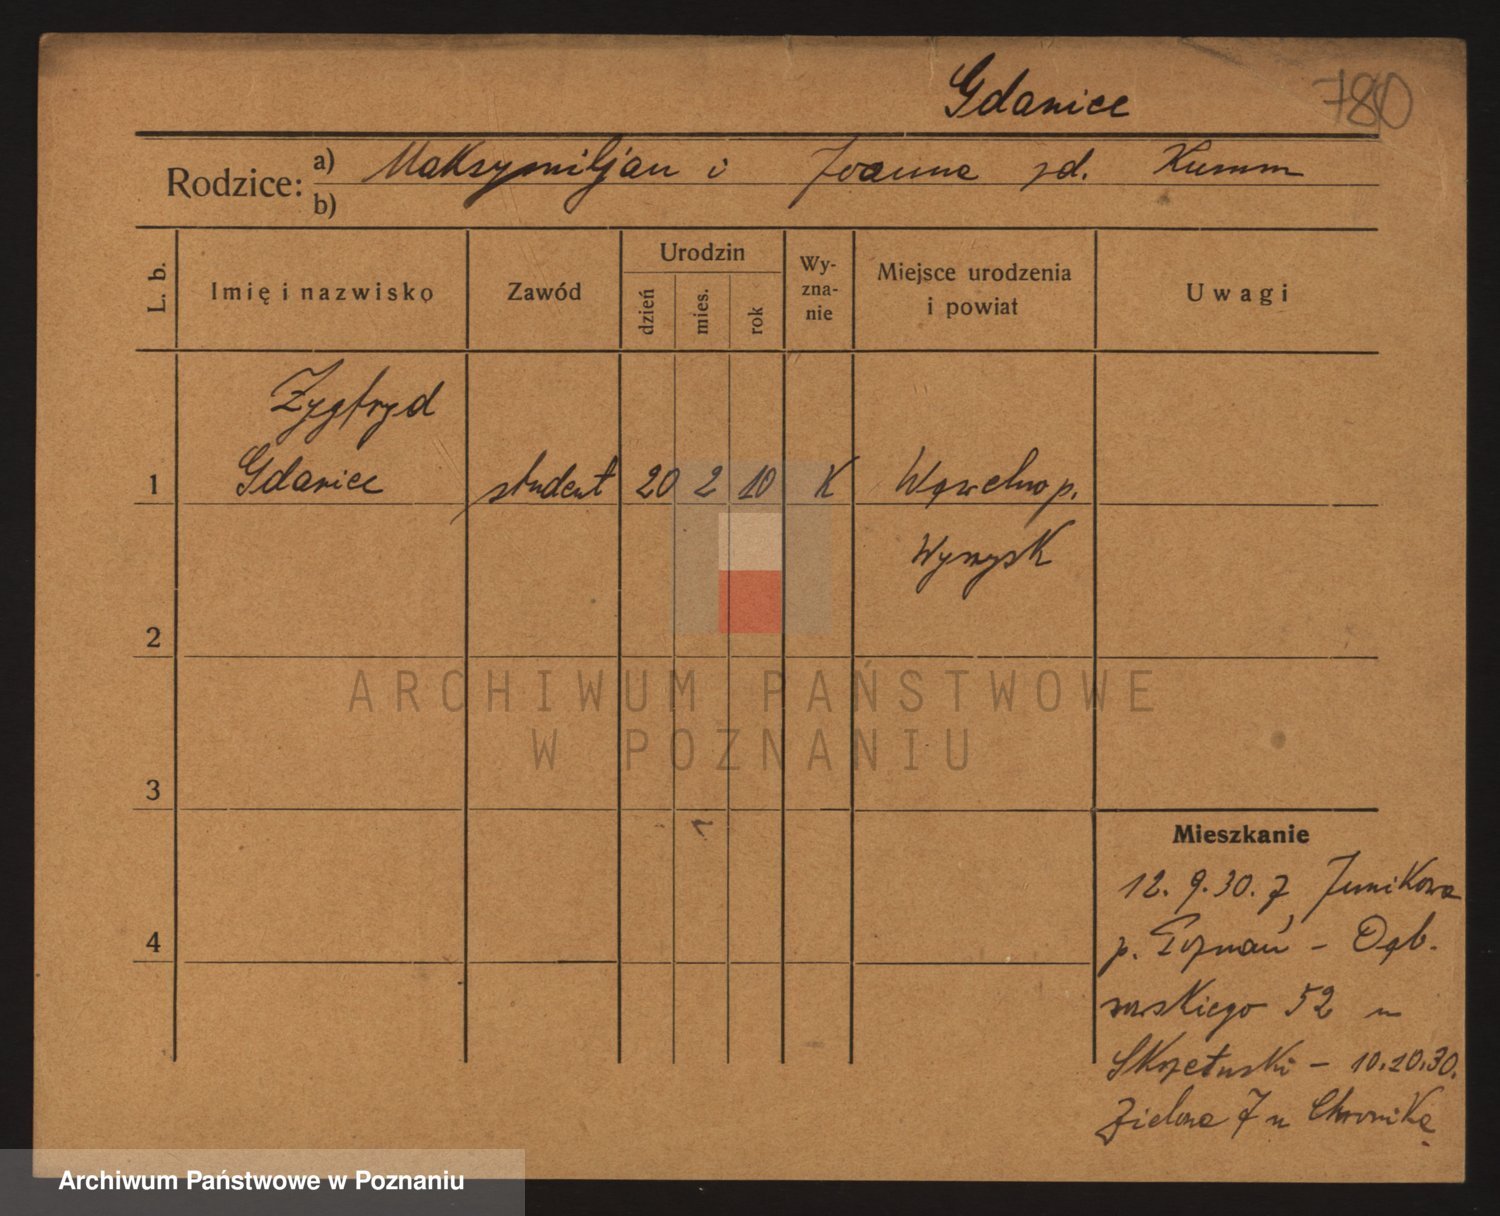 Gdaniec 780
Rodzice: a) Maksymiljan i Joanna zd. Kumm
b)
L. b. Imię i nazwisko Zawód Urodzin dzień mies. rok Wy-zna-nie Miejsce urodzenia i powiat Uwagi
Zygfryd
1 Gdaniec student 20 2 10 K Wąwelno p.
Wyrzysk
2
ARCHIWUM PAŃSTWOWE
W POZNANIU
3
Mieszkanie
12. 9. 30. z Junikowa
4 p. Poznań - Dąb-
rowskiego 52 u
Skrzetuski - 10.10.30.
Zielona 7 u Chronika
Archiwum Państwowe w Poznaniu